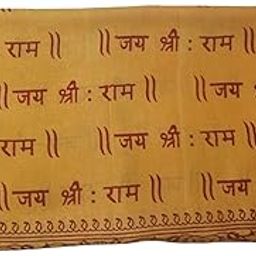 राम ॥ ॥ जय श्री : राम ॥
॥ जय श्री : राम ॥ ॥ जय
राम ॥ ॥ जय श्री : राम ॥
॥ जय श्री : राम ॥ ॥ जय